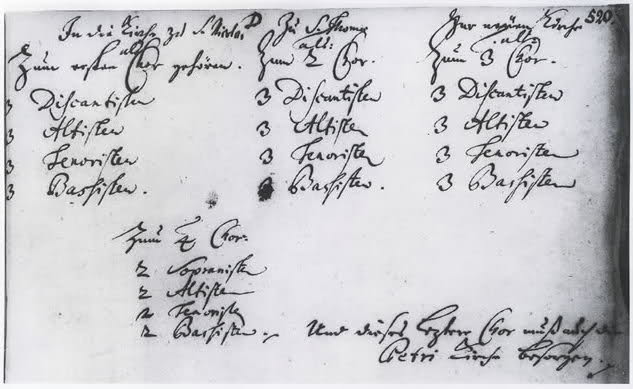 In die Kirche zu S. Nicolai
als
Zum ersten Chor gehören.
3 Discantisten
3 Altisten
3 Tenoristen
3 Bassisten.
Zu S. Thomae
als:
Zum 2 Chor.
3 Discantisten
3 Altisten
3 Tenoristen
Bassisten.
Zur neuen Kirche
als:
Zum 3 Chor.
3 Discantisten
3 Altisten
3 Tenoristen
3 Bassisten
520.
Zum 4 Chor.
2 Sopranisten
2 Altisten
2 Tenoristen
2 Bassisten.
Und dieses letztere Chor muß auch die
Petri Kirche besorgen.